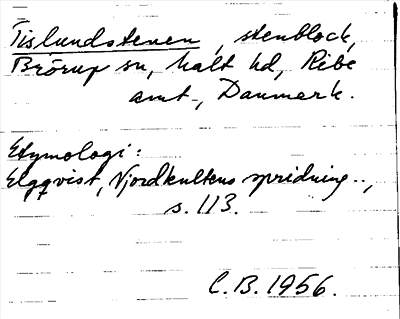 Tislundstenen, stenblock,
Brörup sn, Malt hd, Ribe
amt., Danmark.
Etymologi:
Elgqvist, Njordkultens spridning..,
s. 113.
C.B. 1956.